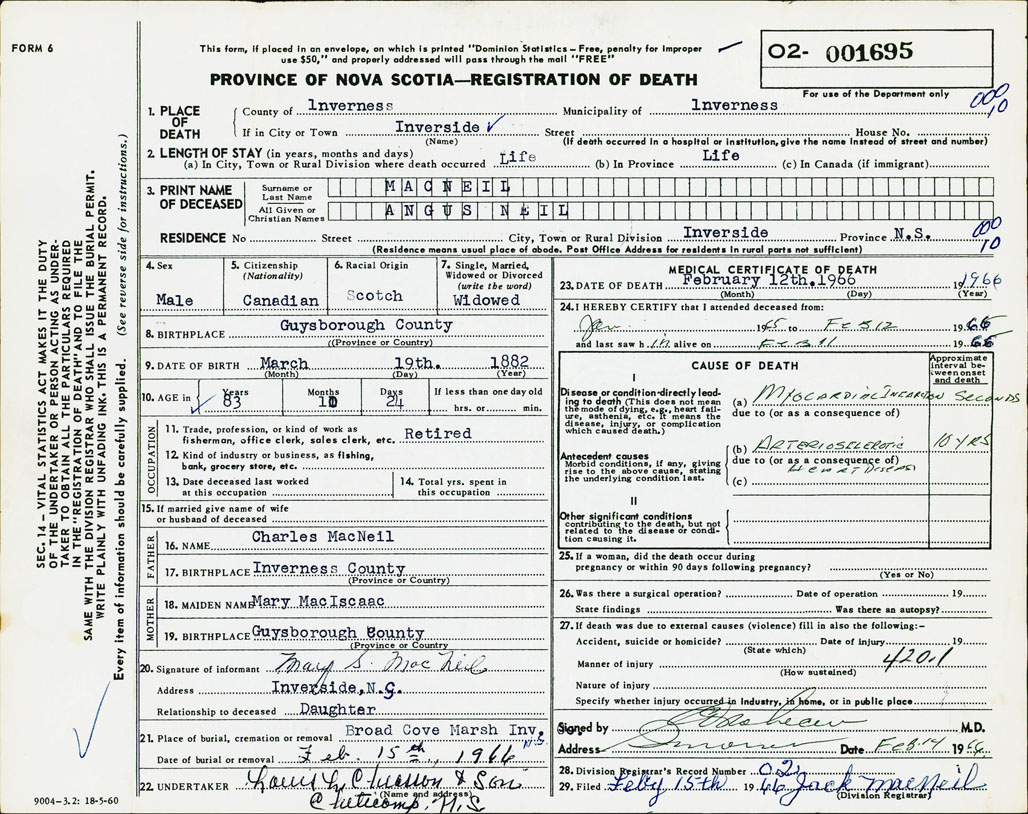 FORM 6
This form, if placed in an envelope, on which is printed "Dominion Statistics – Free, penalty for improper
use $50," and properly addressed will pass through the mail "FREE"
PROVINCE OF NOVA SCOTIA—REGISTRATION OF DEATH
O2- 001695
For use of the Department only
000
10
1. PLACE OF DEATH
County of Inverness Municipality of Inverness
If in City or Town Inverside ✓ Street House No.
(Name) (If death occurred in a hospital or institution, give the name instead of street and number)
2. LENGTH OF STAY (in years, months and days)
(a) In City, Town or Rural Division where death occurred Life (b) In Province Life (c) In Canada (if immigrant)
3. PRINT NAME OF DECEASED
Surname or Last Name MACNEIL
All Given or Christian Names ANGUS NEIL
RESIDENCE No Street City, Town or Rural Division Inverside Province N.S.
(Residence means usual place of abode. Post Office Address for residents in rural parts not sufficient)
000
10
4. Sex
Male
5. Citizenship
(Nationality)
Canadian
6. Racial Origin
Scotch
7. Single, Married, Widowed or Divorced
(write the word)
Widowed
8. BIRTHPLACE Guysborough County
((Province or Country)
9. DATE OF BIRTH March 19th. 1882
(Month) (Day.) (Year)
10. AGE in Years Months Days If less than one day old
✓ 83 10 24 hrs. or min.
OCCUPATION
11. Trade, profession, or kind of work as
fisherman, office clerk, sales clerk, etc. Retired
12. Kind of industry or business, as fishing,
bank, grocery store, etc.
13. Date deceased last worked
at this occupation
14. Total yrs. spent in
this occupation
15. If married give name of wife
or husband of deceased
FATHER
16. NAME Charles MacNeil
17. BIRTHPLACE Inverness County
(Province or Country)
MOTHER
18. MAIDEN NAME Mary MacIscaac
19. BIRTHPLACE Guysborough County
(Province or Country
20. Signature of informant Mary S. MacNeil
Address Inverside, N.S.
Relationship to deceased Daughter
21. Place of burial, cremation or removal Broad Cove Marsh Inv.
N.S.
Date of burial or removal Feb. 15th, 1966
22. UNDERTAKER & Son
(Name and address)
Cheticamp, N.S
9004-3.2: 18-5-60
MEDICAL CERTIFICATE OF DEATH
23. DATE OF DEATH February 12th. 1966 1966
(Month) (Day) (Year)
24. I HEREBY CERTIFY that I attended deceased from:
Jan 1965 to FEB 12 1966
and last saw him alive on FEB 11 1966
CAUSE OF DEATH
Approximate interval between onset and death
I
Disease or condition directly leading to death (This does not mean the mode of dying, e.g., heart failure, asthenia, etc. It means the disease, injury, or complication which caused death.)
(a) MYOCARDIAL INFARCTION SECONDS
due to (or as a consequence of)
Antecedent causes
Morbid conditions, if any, giving rise to the above cause, stating the underlying condition last.
(b) ARTERIOSCLEROTIC 10 YRS
due to (or as a consequence of)
HEART DISEASE
(c)
II
Other significant conditions
contributing to the death, but not related to the disease or condition causing it.
25. If a woman, did the death occur during
pregnancy or within 90 days following pregnancy?
(Yes or No)
26. Was there a surgical operation? Date of operation 19
State findings Was there an autopsy?
27. If death was due to external causes (violence) fill in also the following:-
Accident, suicide or homicide? Date of injury 19
(State which)
Manner of injury 420.1
(How sustained)
Nature of injury
Specify whether injury occurred in Industry, in home, or in public place
Signed by M.D.
Address Date FEB 14 1966
28. Division Registrar's Record Number 02
29. Filed Feby 15th 1966 Jack MacNeil
(Division Registrar)
SEC. 14 – VITAL STATISTICS ACT MAKES IT THE DUTY
OF THE UNDERTAKER OR PERSON ACTING AS UNDER-
TAKER TO OBTAIN ALL THE PARTICULARS REQUIRED
IN THE "REGISTRATION OF DEATH" AND TO FILE THE
SAME WITH THE DIVISION REGISTRAR WHO SHALL ISSUE THE BURIAL PERMIT.
WRITE PLAINLY WITH UNFADING INK. THIS IS A PERMANENT RECORD.
Every item of information should be carefully supplied. (See reverse side for instructions.)